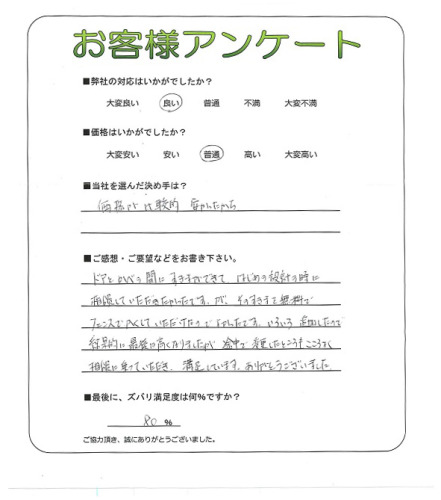 お客様アンケート
■弊社の対応はいかがでしたか？
大変良い 良い 普通 不満 大変不満
■価格はいかがでしたか？
大変安い 安い 普通 高い 大変高い
■当社を選んだ決め手は？
価格が比較的 安かったから
■ご感想・ご要望などをお書き下さい。
ドアと の間に すきまができて はじめの設計の時に
相談していただきたかったです。が、そのすきまを無料で
フェンスで していただけたので よかったです。いろいろ 追加したので
結果的に 高くなりましたが 途中で 変更したところも こころよく
相談に乗っていただき、満足しています。ありがとうございました
■最後に、ズバリ満足度は何%ですか？
80 %
ご協力頂き、誠にありがとうございました。